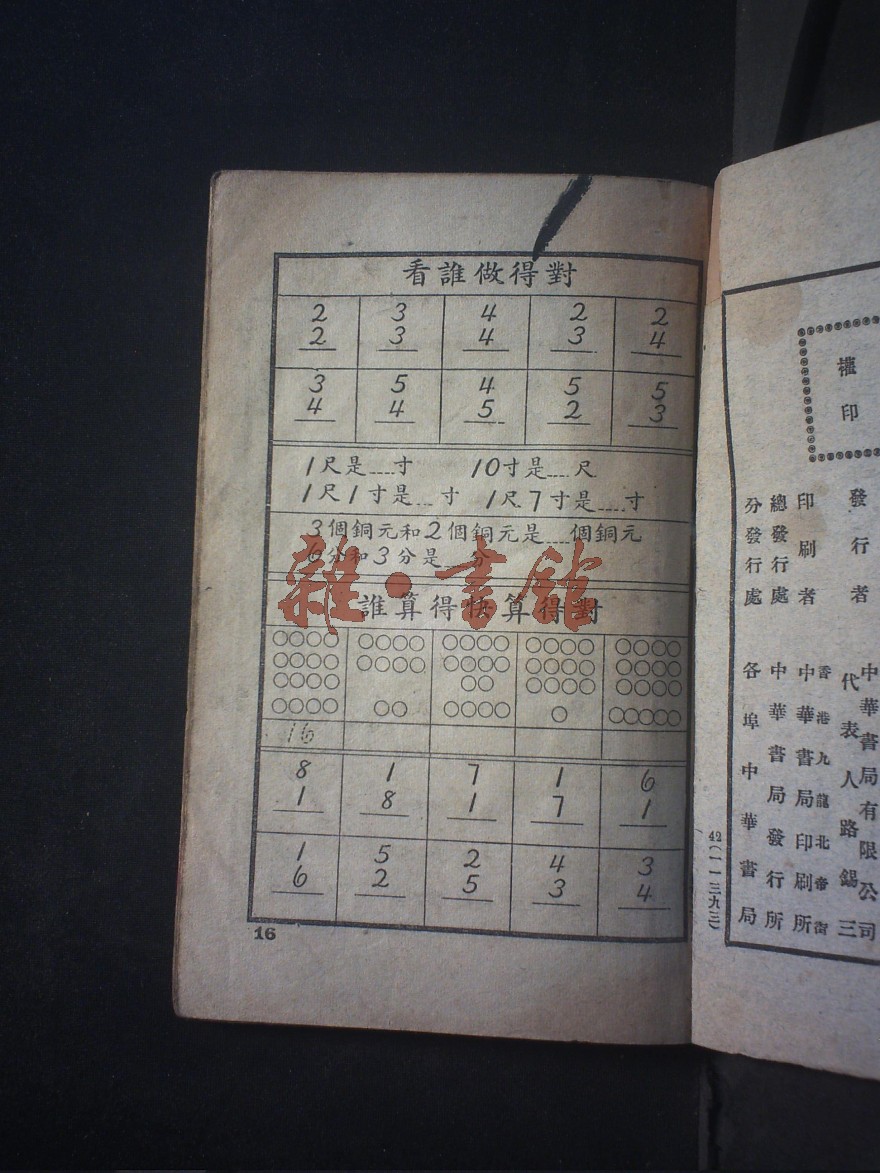 看誰做得對
2 3 4 2 2
2 3 4 3 4
3 5 4 5 5
4 4 5 2 3
1尺是....寸 10寸是....尺
1尺1寸是....寸 1尺7寸是....寸
3個銅元和2個銅元是....個銅元
6分和3分是 分
雜·書館
誰算得快算得對
16
8 1 7 1 6
1 8 1 7 1
1 5 2 4 3
6 2 5 3 4
16
權
印
發行者
印刷者
總發行處
分發行處
中華書局有限公司
代表人路錫三
香港九龍北帝街
中華書局印刷所
中華書局發行所
各埠中華書局
42(一一三九三)